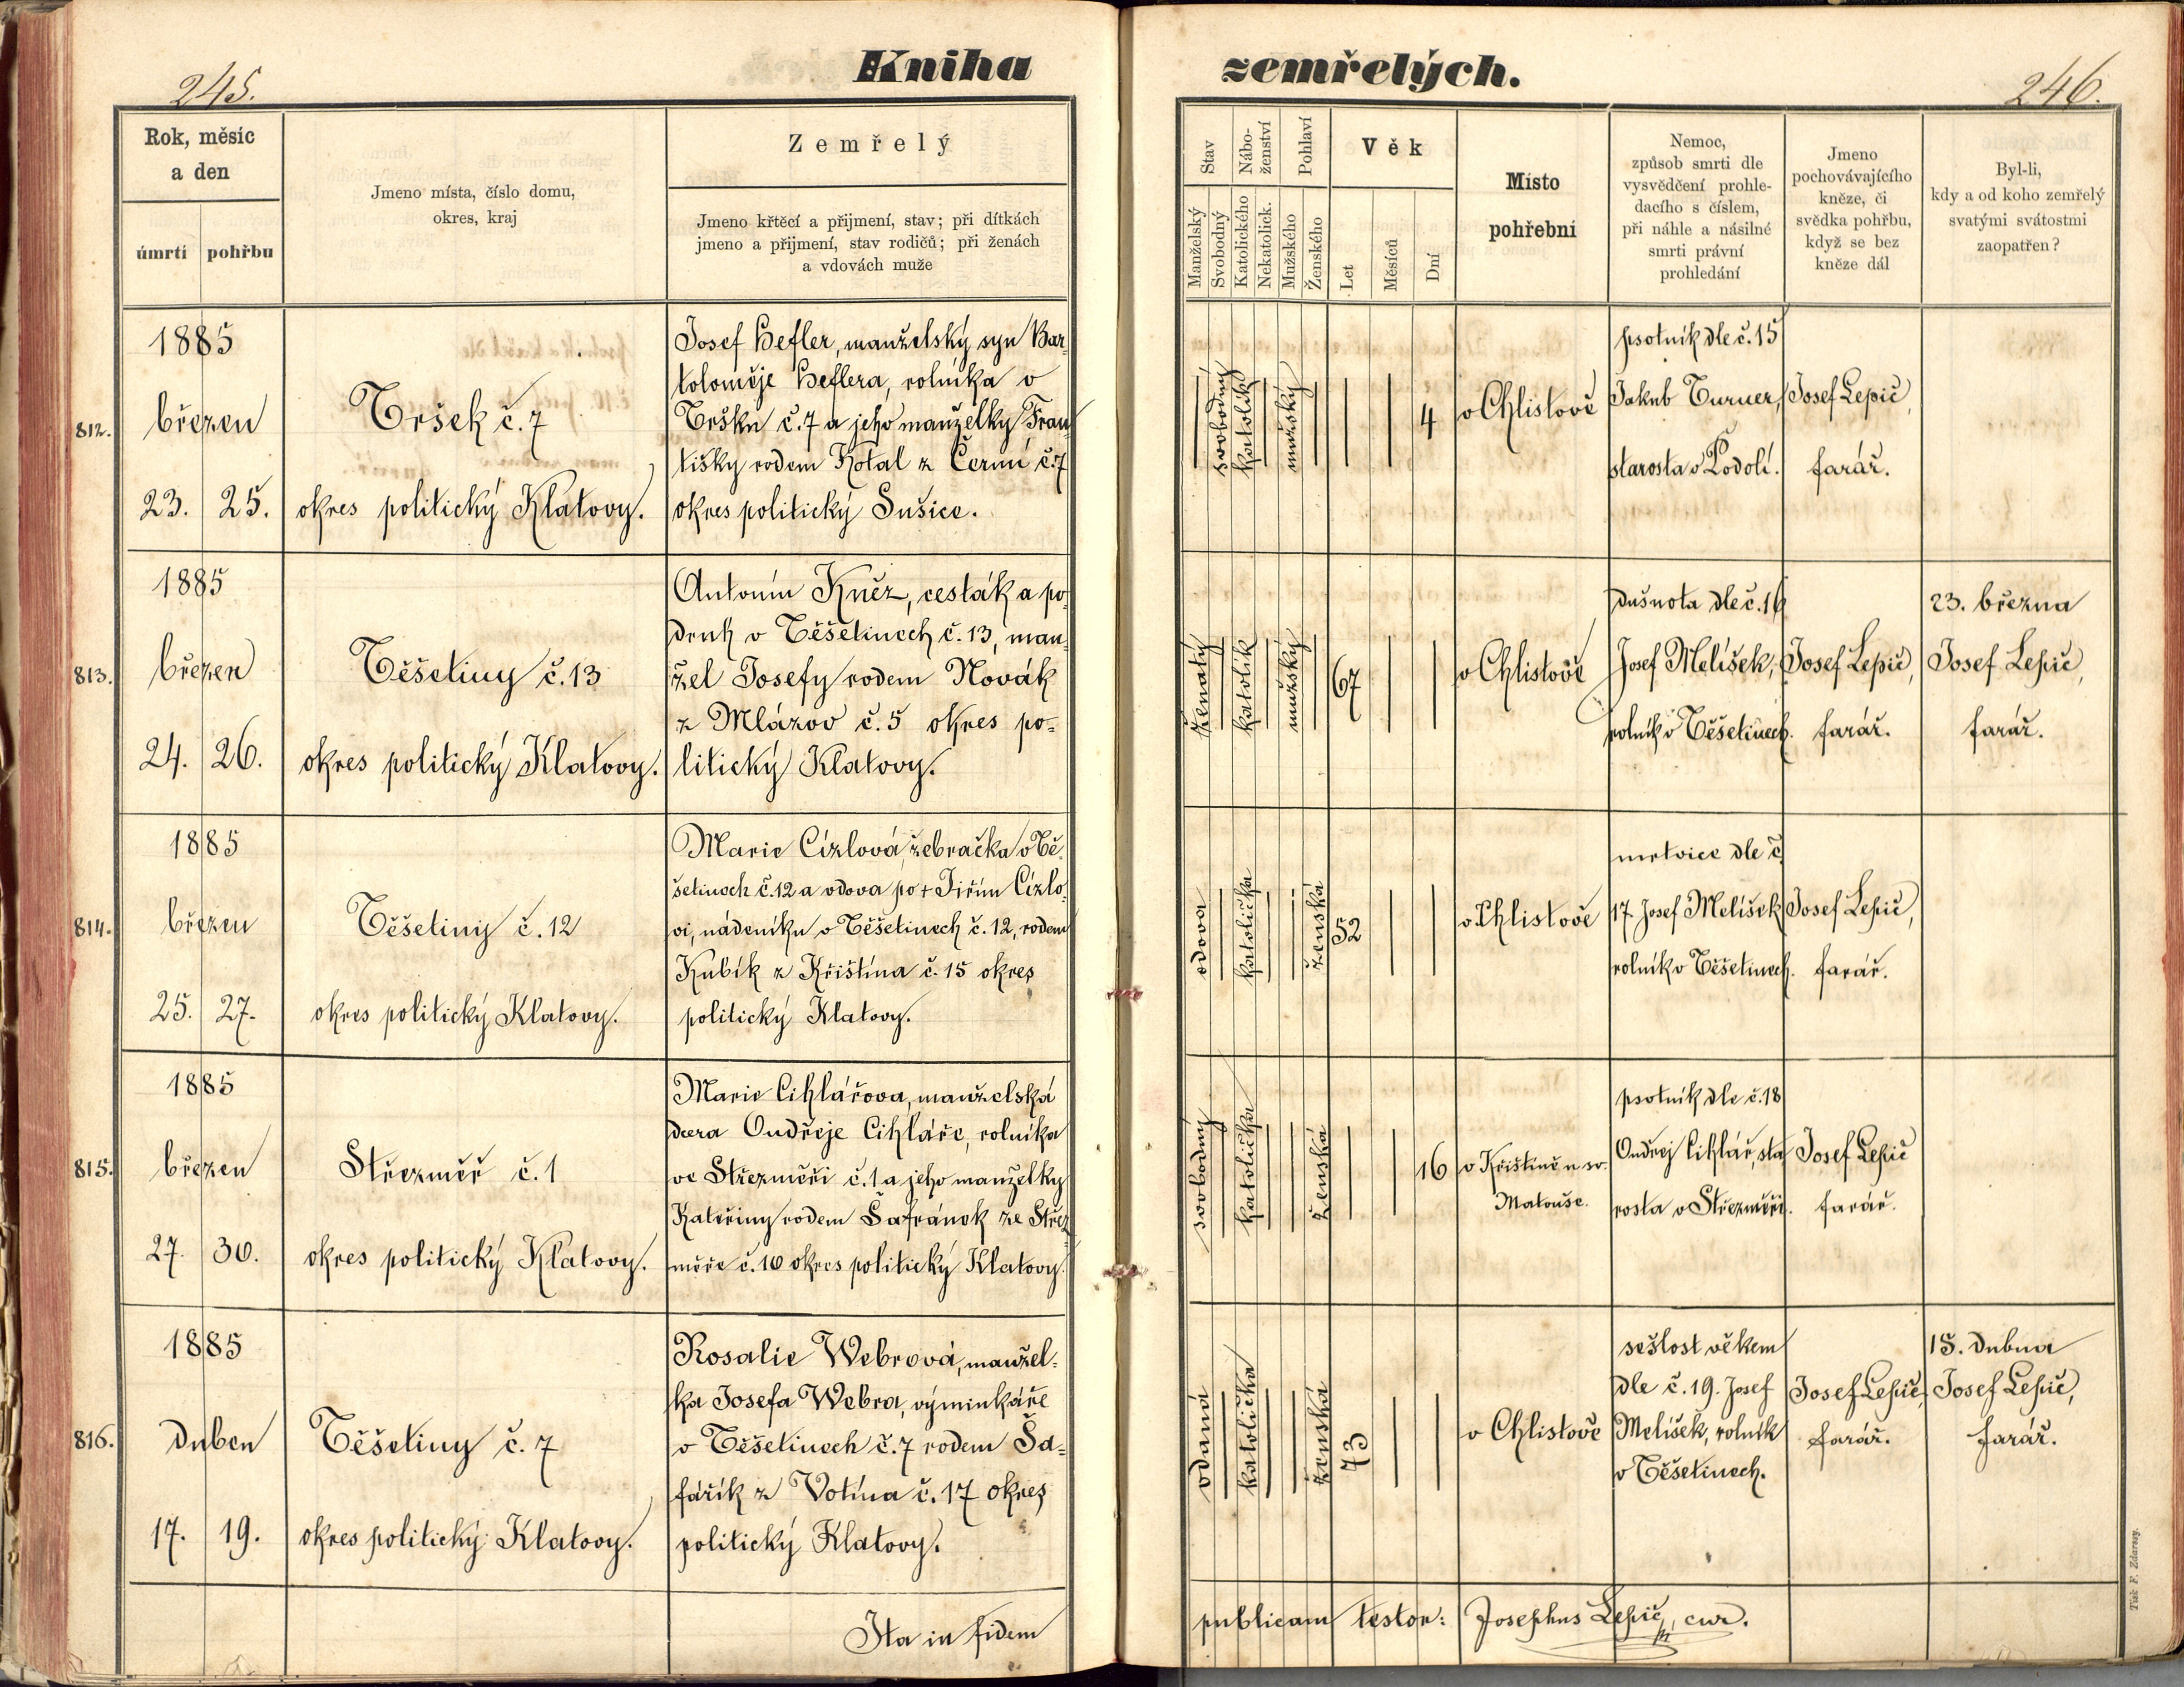 245.
Kniha
zemřelých.
246.
Rok, měsíc
a den
úmrtí
pohřbu
Jmeno místa, číslo domu,
okres, kraj
Zemřelý
Jmeno křtěcí a přijmení, stav; při dítkách
jmeno a přijmení, stav rodičů; při ženách
a vdovách muže
Stav
Nábo-
ženství
Pohlaví
Věk
Manželský
Svobodný
Katolického
Nekatolick.
Mužského
Ženského
Let
Měsíců
Dní
Místo
pohřební
Nemoc,
způsob smrti dle
vysvědčení prohle-
dacího s číslem,
při náhle a násilné
smrti právní
prohledání
Jmeno
pochovávajícího
kněze, či
svědka pohřbu,
když se bez
kněze dál
Byl-li,
kdy a od koho zemřelý
svatými svátostmi
zaopatřen?
812.
1885
březen
23. 25.
Tršek č. 7
okres politický Klatovy.
Josef Hefler, manželský syn Bar-
toloměje Heflera, rolníka v
Tršku č. 7 a jeho manželky Fran
tišky rodem Kotal z Čermí č. 7
okres politický Sušice.
svobodný
katolík
mužský
4
v Chlistově
psotník dle č. 15
Jakub Turner,
starosta v Podolí.
Josef Lepič,
farář.
813.
1885
březen
24. 26.
Těšetiny č. 13
okres politický Klatovy.
Antonín Kněz, cesták a po
druh v Těšetinech č. 13, man
žel Josefy rodem Novák
z Mlázov č. 5 okres po-
litický Klatovy.
ženatý
katolík
mužský
67
v Chlistově
dušnota dle č. 16
Josef Melíšek,
rolník v Těšetinech.
Josef Lepič,
farář.
23. března
Josef Lepič,
farář.
814.
1885
březen
25. 27.
Těšetiny č. 12
okres politický Klatovy.
Marie Cízlová, žebračka v Tě-
šetinech č. 12 a vdova po + Jiřím Cízlo
vi, nádeníku v Těšetinech č. 12, rodem
Kubík z Křištína č. 15 okres
politický Klatovy.
vdova
katolička
ženská
52
v Chlistově
mrtvice dle č.
17. Josef Melíšek
rolník v Těšetinech.
Josef Lepič,
farář.
815.
1885
březen
27. 30.
Střezměř č. 1
okres politický Klatovy.
Marie Cihlářova, manželská
dcera Ondřeje Cihláře, rolníka
ve Střezměři č. 1 a jeho manželky
Kateřiny rodem Šafránek ze Střez
měře č. 10 okres politický Klatovy.
svobodný
katolička
ženská
16
v Křištíně u sv.
Matouše.
psotník dle č. 18
Ondřej Cihlář, sta
rosta v Střezměři.
Josef Lepič
farář.
816.
1885
duben
17. 19.
Těšetiny č. 7
okres politický Klatovy.
Rosalie Webrová, manžel-
ka Josefa Webra, výminkáře
v Těšetinech č. 7 rodem Ša-
fářík z Votína č. 17 okres
politický Klatovy.
vdaná
katolička
ženská
73
v Chlistově
sešlost věkem
dle č. 19. Josef
Melíšek, rolník
v Těšetinech.
Josef Lepič,
farář.
15. dubna
Josef Lepič,
farář.
Ita in fidem
publicam testor: Josephus Lepič, cur.
Tisk F. Zdarssy.